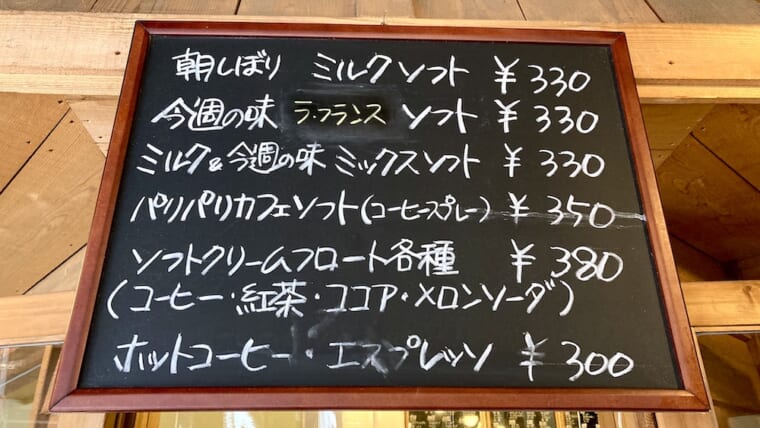 朝しぼり ミルクソフト ¥330
今週の味 ラ・フランス ソフト ¥330
ミルク&今週の味 ミックスソフト ¥330
パリパリカフェソフト(コーヒースプレー) ¥350
ソフトクリームフロート各種 ¥380
(コーヒー・紅茶・ココア・メロンソーダ)
ホットコーヒー・エスプレッソ ¥300